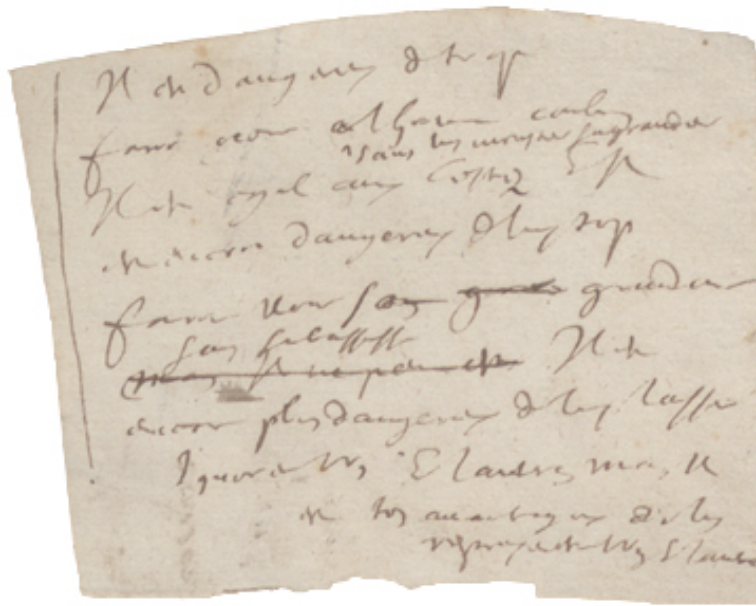 Il est dangereux de trop
faire voir a l'homme combien
sans luy monstrer sa grandeur
Il est egal aux bestes Il
est encore dangereux de luy trop
faire voir sa grandeur
sans sa bassesse
Il est
encore plus dangereux de luy laisser
ignorer l'un et l'autre mais il
est tres avantageux de luy
representer l'un et l'autre